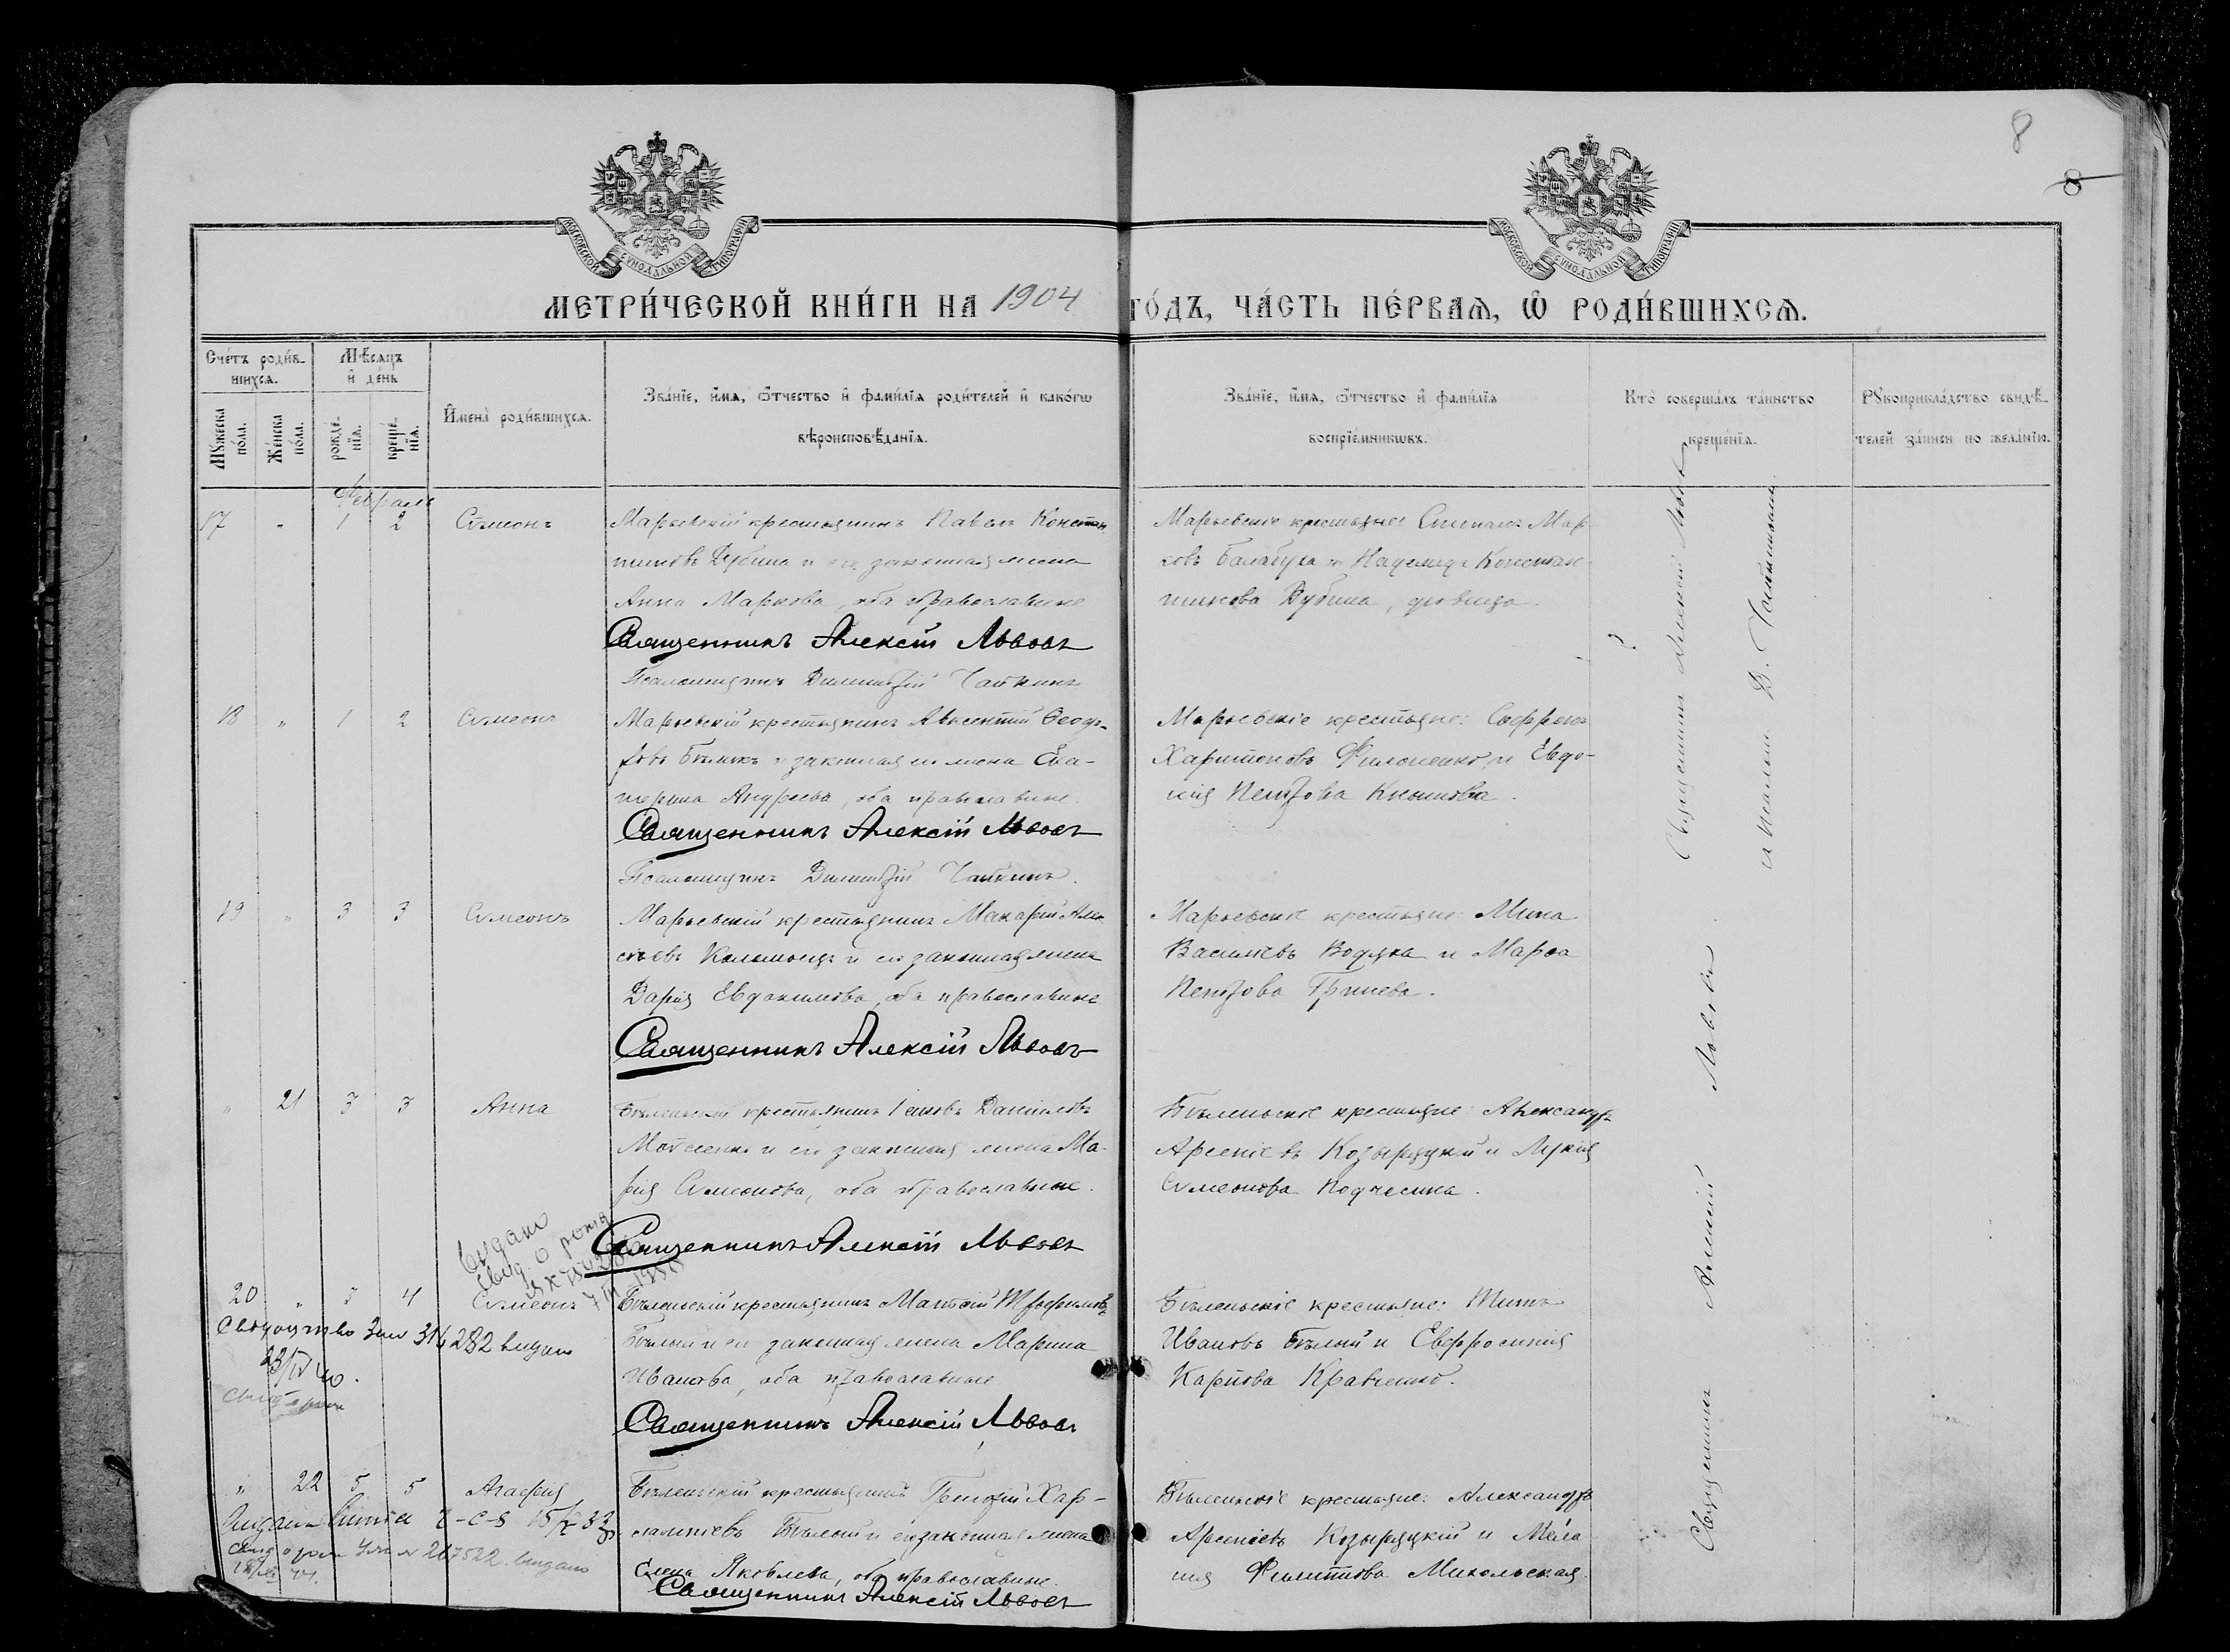 8
8
МОСКОВСКОЙ СѴНОДАЛЬНОЙ ТИПОГРАФІИ
МОСКОВСКОЙ СѴНОДАЛЬНОЙ ТИПОГРАФІИ
МЕТРИ́ЧЕСКОЙ КНИ́ГИ НА 1904 ГО́ДЪ, ЧА́СТЬ ПЕ́РВАѦ, Ѡ҆ РОДИ́ВШИХСѦ.
Сче́тъ роди́в-
шихсѧ.
Мѣ́сѧцъ
и҆ де́нь
Мꙋ́жеска
по́ла.
Же́нска
по́ла.
рожде́-
нїѧ.
креще́-
нїѧ.
И҆мена̀ роди́вшихсѧ.
Зва́нїе, и҆́мѧ, ѻ҆́тчество и҆ фамѝлїѧ роди́телей и҆ како́гѡ
вѣроисповѣ́данїѧ.
Зва́нїе, и҆́мѧ, ѻ҆́тчество и҆ фамѝлїѧ
воспрїе́мникѡвъ.
Кто̀ соверша́лъ та́инство
креще́нїѧ.
Рꙋкоприкла́дство свидѣ́-
телей за́писи по жела́нїю.
Февраль
17 " 1 2 Сѵмеонъ
Марьевскій крестьянинъ Павелъ Констан
тиновъ Дубина и его законная жена
Анна Маркова, оба православные.
Священникъ Алексій Львовъ
Псаломщикъ Димитрій Чайкинъ
Марьевскіе крестьяне: Степанъ Мар-
ковъ Балабуха и Надежда Констан-
тинова Дубина, девица.
18 " 1 2 Сѵмеонъ
Марьевскій крестьянинъ Авксентій Ѳеодо-
ровъ Бѣликъ и законная его жена Ека-
терина Андреева, оба православные.
Священникъ Алексій Львовъ
Псаломщикъ Димитрій Чайкинъ.
Марьевскіе крестьяне: Софронъ
Харитоновъ Филоненко и Евдо-
кія Петрова
19 " 3 3 Сѵмеонъ
Марьевскій крестьянинъ Макарій
сѣевъ Коломоецъ и его законная жена
Дарія Евдокимова, оба православные
Священникъ Алексій Львовъ
Марьевскіе крестьяне: Мина
Василіевъ Водяка и Марѳа
Петрова Гринева.
" 21 3 3 Анна
Бѣленьскій крестьянинъ Даніиловъ
и его законная жена Ма-
рія Сѵмеонова, оба православные.
Священникъ Алексій Львовъ
Бѣленьскіе крестьяне: Александръ
Арсеніевъ Козырядскій и Лукія
Сѵмеонова
видано
свид. о рожд
20 " 3 4 Сѵмеонъ
Бѣленьскій крестьянинъ Матѳій Трофимовъ
Бѣлый и его законная жена Марина
Иванова, оба православные.
Священникъ Алексій Львовъ
Бѣленьскіе крестьяне: Титъ
Ивановъ Бѣлый и Евфросинія
Карпова Кравченко.
282 видано
" 22 5 5 Агафія
Бѣленьскій крестьянинъ Георгій Хар-
лампіевъ Бѣлый и его законная жена
Елена Яковлева, оба православные.
Священникъ Алексій Львовъ
Бѣленьскіе крестьяне: Александръ
Арсеніевъ Козырядскій и Мела-
нія Филиппова Микольская.
267522 видано
Священникъ Алексій Львовъ
и псалом. Д. Чайкинъ.
Священникъ Алексій Львовъ